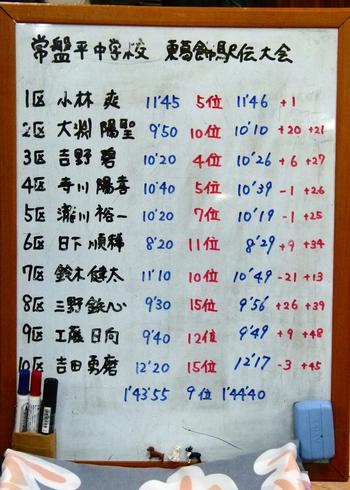 常盤平中学校 東葛飾駅伝大会
1区 小林 爽 11'45 5位 11'46 +1
2区 大渕 陽聖 9'50 10位 10'10 +20 +21
3区 吉野 碧 10'20 4位 10'26 +6 +27
4区 寺川 陽喜 10'40 5位 10'39 -1 +26
5区 瀧川 裕一 10'20 7位 10'19 -1 +25
6区 日下 順稀 8'20 11位 8'29 +9 +34
7区 鈴木 健太 11'10 10位 10'49 -21 +13
8区 三野 鉄心 9'30 15位 9'56 +26 +39
9区 工藤 日向 9'40 12位 9'49 +9 +48
10区 吉田 勇磨 12'20 15位 12'17 -3 +45
1'43'55 9位 1'44'40